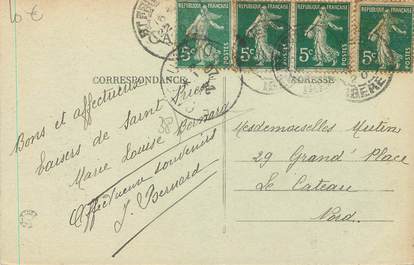 10 €
REPUBLIQUE FRANÇAISE REPUBLIQUE FRANÇAISE REPUBLIQUE FRANÇAISE REPUBLIQUE FRANÇAISE
5c POSTES 5c POSTES 5c POSTES 5c POSTES
CORRESPONDANCE
Bons et affectueux
baisers de Saint Brieuc
Marie Louise Bernard
Affectueux souvenirs
J. Bernard
Mesdemoiselles
29 Grand' Place
Le Cateau
Nord